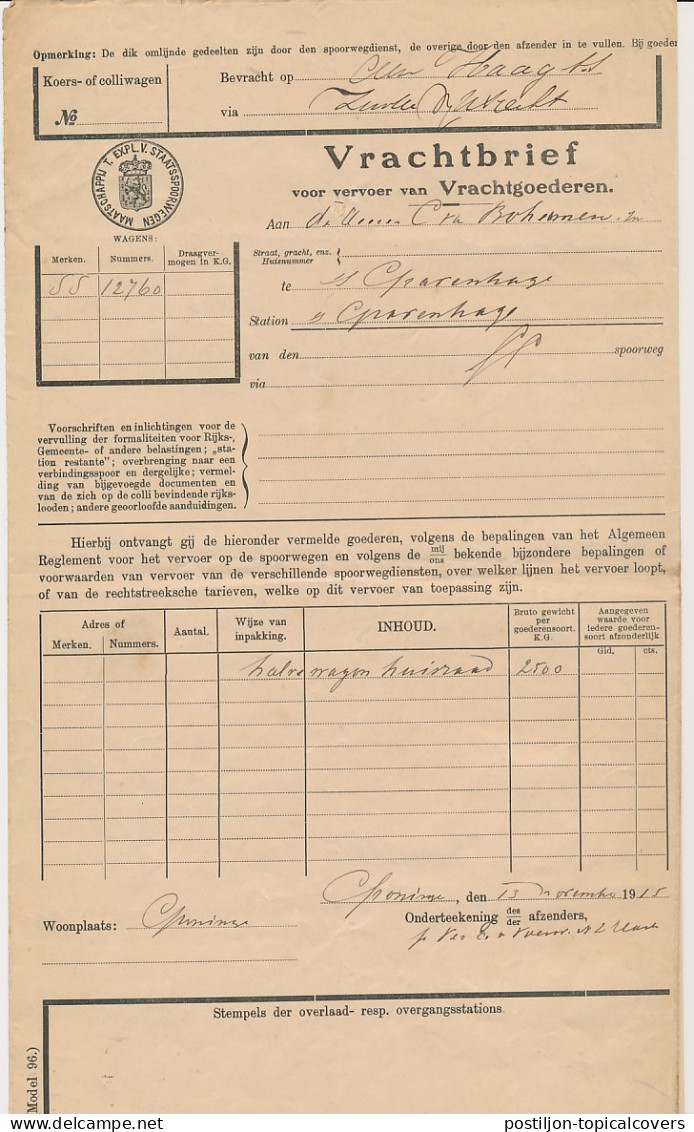 Opmerking: De dik omlijnde gedeelten zijn door den spoorwegdienst, de overige door den afzender in te vullen. Bij goeder
Koers- of colliwagen
Bevracht op Haag
№
via Utrecht
MAATSCHAPPIJ T. EXPL. V. STAATSSPOORWEGEN
Vrachtbrief
voor vervoer van Vrachtgoederen.
Aan C Bohemen
WAGENS:
Merken. Nummers. Draagver-
mogen in K.G.
SS 12760
Straat, gracht, enz.
Huisnummer
te 's Gravenhage
Station 's Gravenhage
van den SS spoorweg
via
Voorschriften en inlichtingen voor de
vervulling der formaliteiten voor Rijks-,
Gemeente- of andere belastingen; „sta-
tion restante"; overbrenging naar een
verbindingsspoor en dergelijke; vermel-
ding van bijgevoegde documenten en
van de zich op de colli bevindende rijks-
looden; andere geoorloofde aanduidingen.
Hierbij ontvangt gij de hieronder vermelde goederen, volgens de bepalingen van het Algemeen
Reglement voor het vervoer op de spoorwegen en volgens de mij/ons bekende bijzondere bepalingen of
voorwaarden van vervoer van de verschillende spoorwegdiensten, over welker lijnen het vervoer loopt,
of van de rechtstreeksche tarieven, welke op dit vervoer van toepassing zijn.
Adres of
Merken. Nummers.
Aantal.
Wijze van
inpakking.
INHOUD.
Bruto gewicht
per
goederensoort.
K.G.
Aangegeven
waarde voor
iedere goederen-
soort afzonderlijk
Gld. cts.
halve wagen huisraad 2500
Groningen, den 13 November 1915
Woonplaats: Groningen
Onderteekening des/der afzenders,
Stempels der overlaad- resp. overgangsstations.
Model 96.)
postiljon-topicalcovers